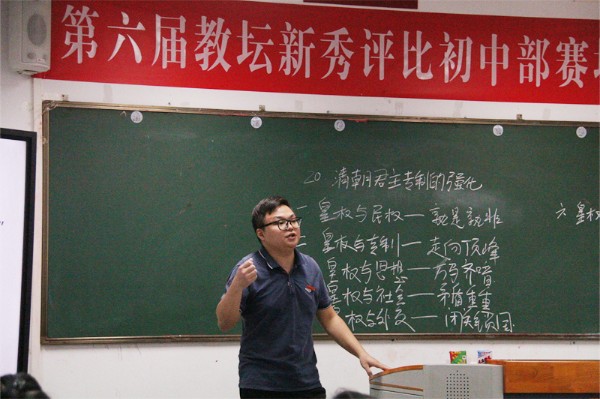 第六届教坛新秀评比初中部赛
20 清朝君主专制的强化
一 皇权与民权—孰是孰非
二 皇权与专制—走向顶峰
皇权与思想—万马齐喑
皇权与社会—矛盾重重
皇权与外交—闭关锁国
六 皇权